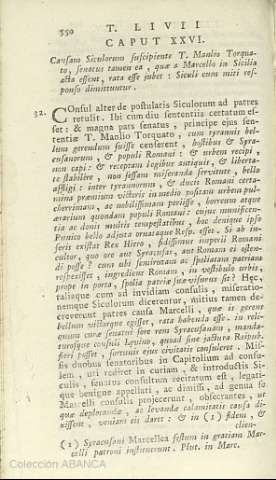 550
T. LIVII
CAPUT XXVI.
Causam Siculorum suscipiente T. Manlio Torqua-
to, senatus tamen ea, quæ a Marcello in Sicilia
acta essent, rata esse jubet: Siculi cum miti res-
ponso dimittuntur.
32. COnsul alter de postulatis Siculorum ad patres
retulit. Ibi cum diu sententiis certatum es-
set: & magna pars senatus, principe ejus sen-
tentiæ T. Manlio Torquato, cum tyrannis bel-
lum gerendum fuisse censerent, hostibus & Syra-
cusanorum, & populi Romani: & urbem recipi,
non capi: & receptam legibus antiquis, & liberta-
te stabiliri, non fessam miseranda servitute, bello
affligi: inter tyrannorum, & ducis Romani certa-
mina præmium victoris in medio positam urbem pul-
cherrimam, ac nobilissimam periisse, horreum atque
ærarium quondam populi Romani: cujus munificen-
tia ac donis multis tempestatibus, hoc denique ipso
Punico bello adjuta ornataque Resp. esset. Si ab in-
feris existat Rex Hiero, fidissimus imperii Romani
cultor, quo ore aut Syracusas, aut Romam ei osten-
di posse? cum ubi semirutam ac spoliatam patriam
respexisset, ingrediens Romam, in vestibulo urbis,
prope in porta, spolia patriæ suæ visurus sit? Hæc,
taliaque cum ad invidiam consulis, miseratio-
nemque Siculorum dicerentur, mitius tamen de-
creverunt patres causa Marcelli, que is gerens
bellum victorque egisset, rata habenda esse. in reli-
quum curæ senatui fore rem Syracusanam, manda-
turosque consuli Lævino, quod sine jactura Reipub.
fieri posset, fortunis ejus civitatis consuleret. Mis-
sis duobus senatoribus in Capitolium ad consu-
lem, uti rediret in curiam, & introductis Si-
culis, senatus consultum recitatum est, legati-
que benigne appellati, ac dimissi, ad genua se
Marcelli consulis projecerunt, obsecrantes, ut
quæ deplorandæ, ac levandæ calamitatis causa di-
xissent, veniam eis daret: & in (1) fidem, &
clien-
(1) Syracusani Marcellea festum in gratiam Mar-
celli patroni instituerunt. Plut. in Marc.
Colección ABANCA